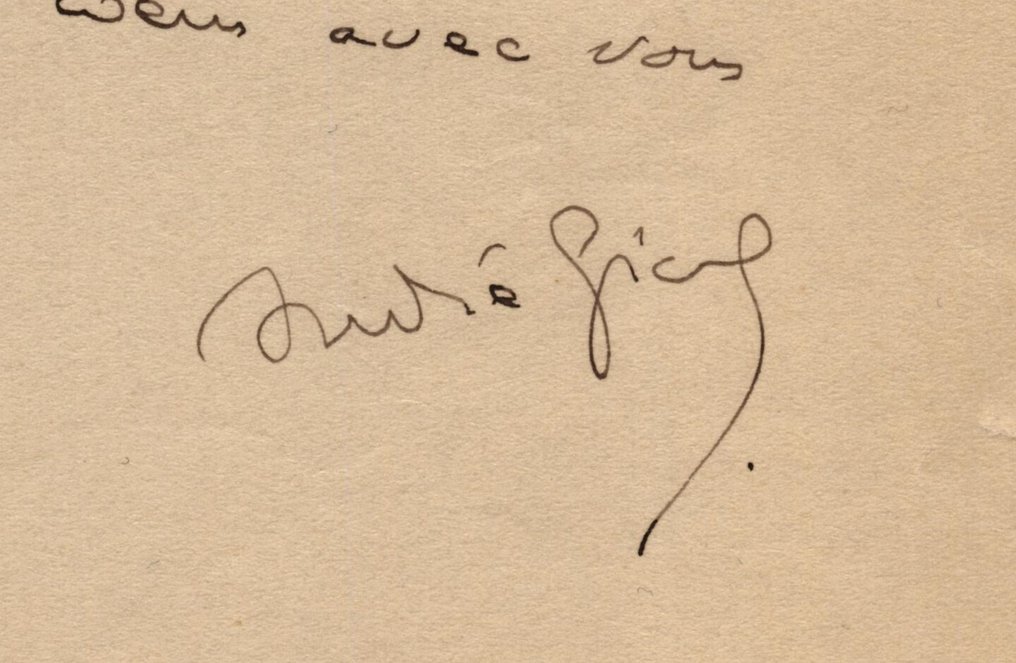 avec vous
André Gide